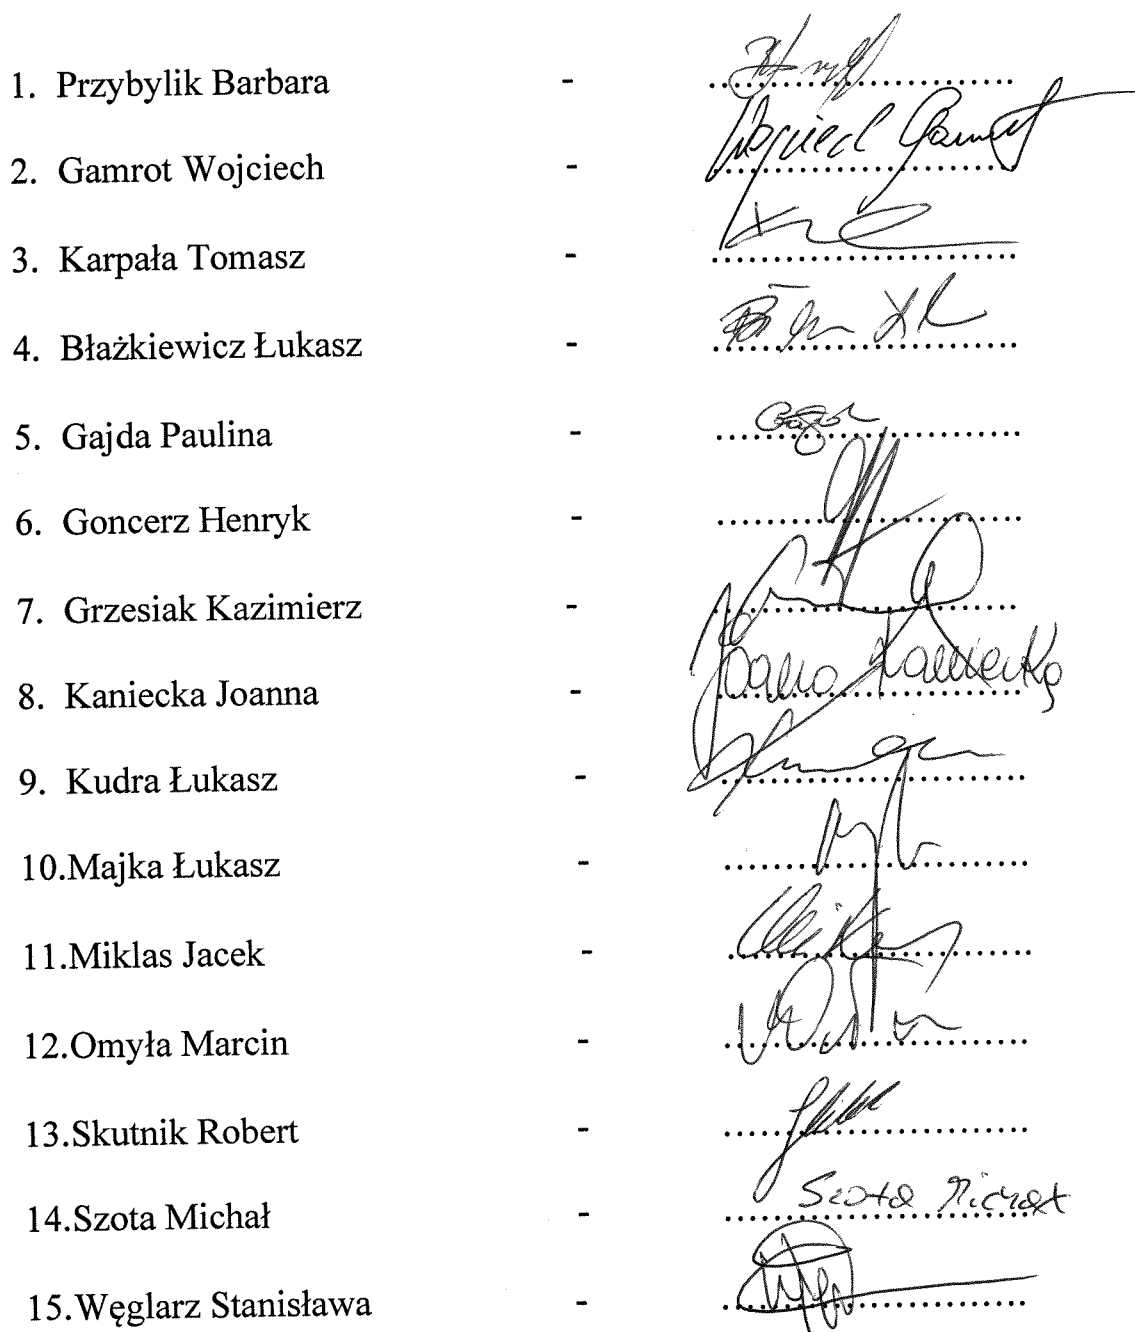 1. Przybylik Barbara - ..............................
2. Gamrot Wojciech - Wojciech Gamrot
3. Karpała Tomasz - ..............................
4. Błażkiewicz Łukasz - ..............................
5. Gajda Paulina - ..............................
6. Goncerz Henryk - ..............................
7. Grzesiak Kazimierz - ..............................
8. Kaniecka Joanna - Joanna Kaniecka
9. Kudra Łukasz - ..............................
10.Majka Łukasz - ..............................
11.Miklas Jacek - ..............................
12.Omyła Marcin - ..............................
13.Skutnik Robert - ..............................
14.Szota Michał - Szota Michał
15.Węglarz Stanisława - ..............................